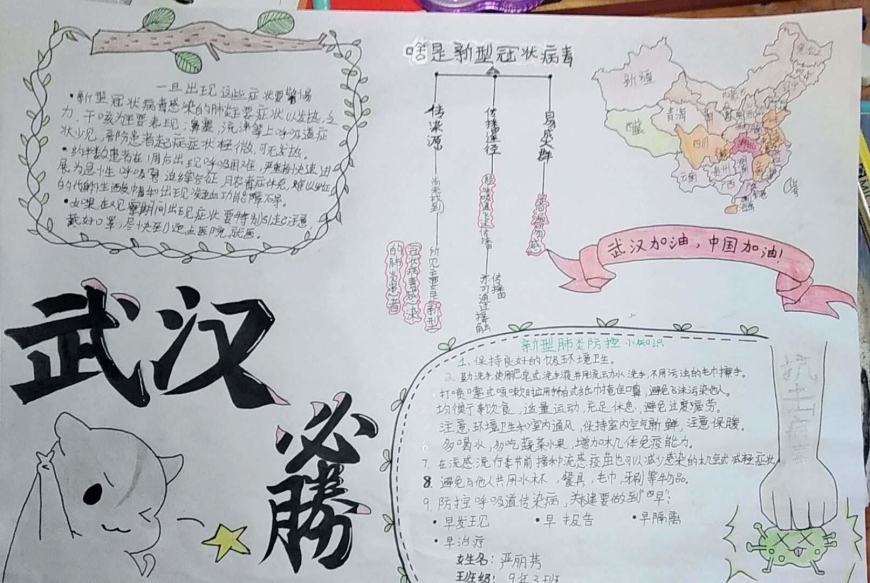 一旦出现这些症状要警惕
•新型冠状病毒感染的肺炎主要症状以发热、乏
力、干咳为主要表现,鼻塞、流涕等上呼吸道症
状少见,
•约半数患者在1周后出现呼吸困难,严重者快速进
展为急性呼吸窘迫综合征、脓毒症休克、难以纠正
的代谢性酸中毒和出现凝血功能障碍。
•如果在观察期间出现症状要特别引起注意
戴好口罩,尽快到就近医院就医。
啥是新型冠状病毒
传染源
传播途径
易感人群
所见主要是新型
冠状病毒感染
的肺炎患者
经呼吸道飞沫传播
亦可通过接触
传播
普遍易感
新疆
西藏
青海
四川
云南
武汉加油,中国加油!
武汉
必勝
新型肺炎防控小知识
1、保持良好的环境卫生。
2、勤洗手,使用肥皂或洗手液并用流动水洗手,不用污浊的毛巾擦手。
打喷嚏或咳嗽时应用手帕或纸巾掩住口鼻,避免飞沫污染他人。
均衡饮食,适量运动,充足休息,避免过度疲劳。
注意环境卫生和室内通风,保持室内空气新鲜,注意保暖。
多喝水,多吃蔬菜水果,增加机体免疫能力。
7、在流感流行季节前接种流感疫苗也可以减少感染的机会或减轻症状
8、避免与他人共用水杯、餐具、毛巾、牙刷等物品。
9、防控呼吸道传染病,关键要做到“四早”
•早发现 •早报告 •早隔离
•早治疗
姓名:严丽芳
班级:9年3班
抗击病毒